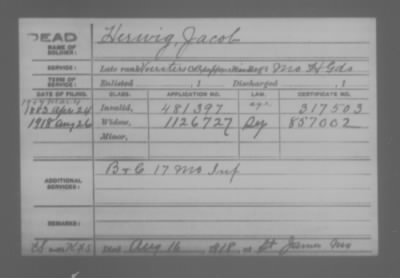 DEAD
Herwig, Jacob
NAME OF SOLDIER:
SERVICE: Late rank Mo H Gds
TERM OF SERVICE: Enlisted , 1 Discharged , 1
DATE OF FILING. CLASS. APPLICATION NO. LAW. CERTIFICATE NO.
1883 Apr 24 Invalid, 481397 age 317503
1918 Aug 26 Widow, 1126727 857002
Minor,
ADDITIONAL SERVICES: B + C 17 Mo Inf
REMARKS:
Died Aug 16, 1918, at St James Mo